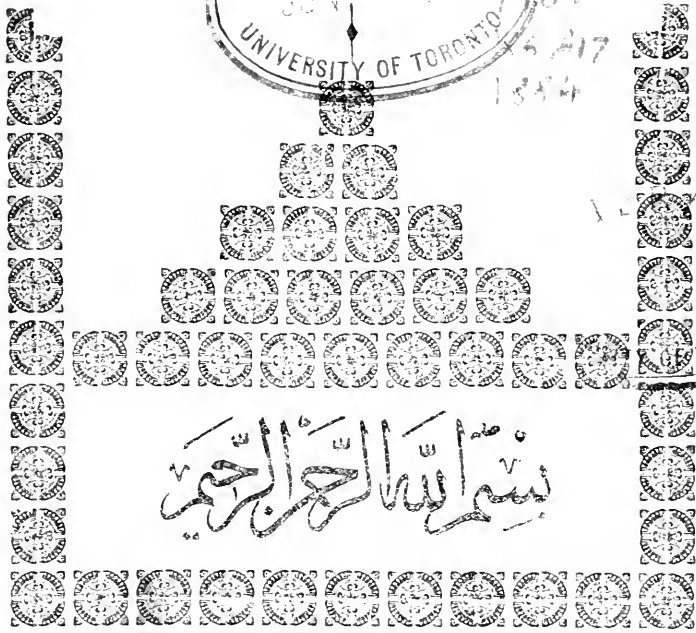 JUN
UNIVERSITY OF TORONTO
بسم الله الرحمن الرحيم